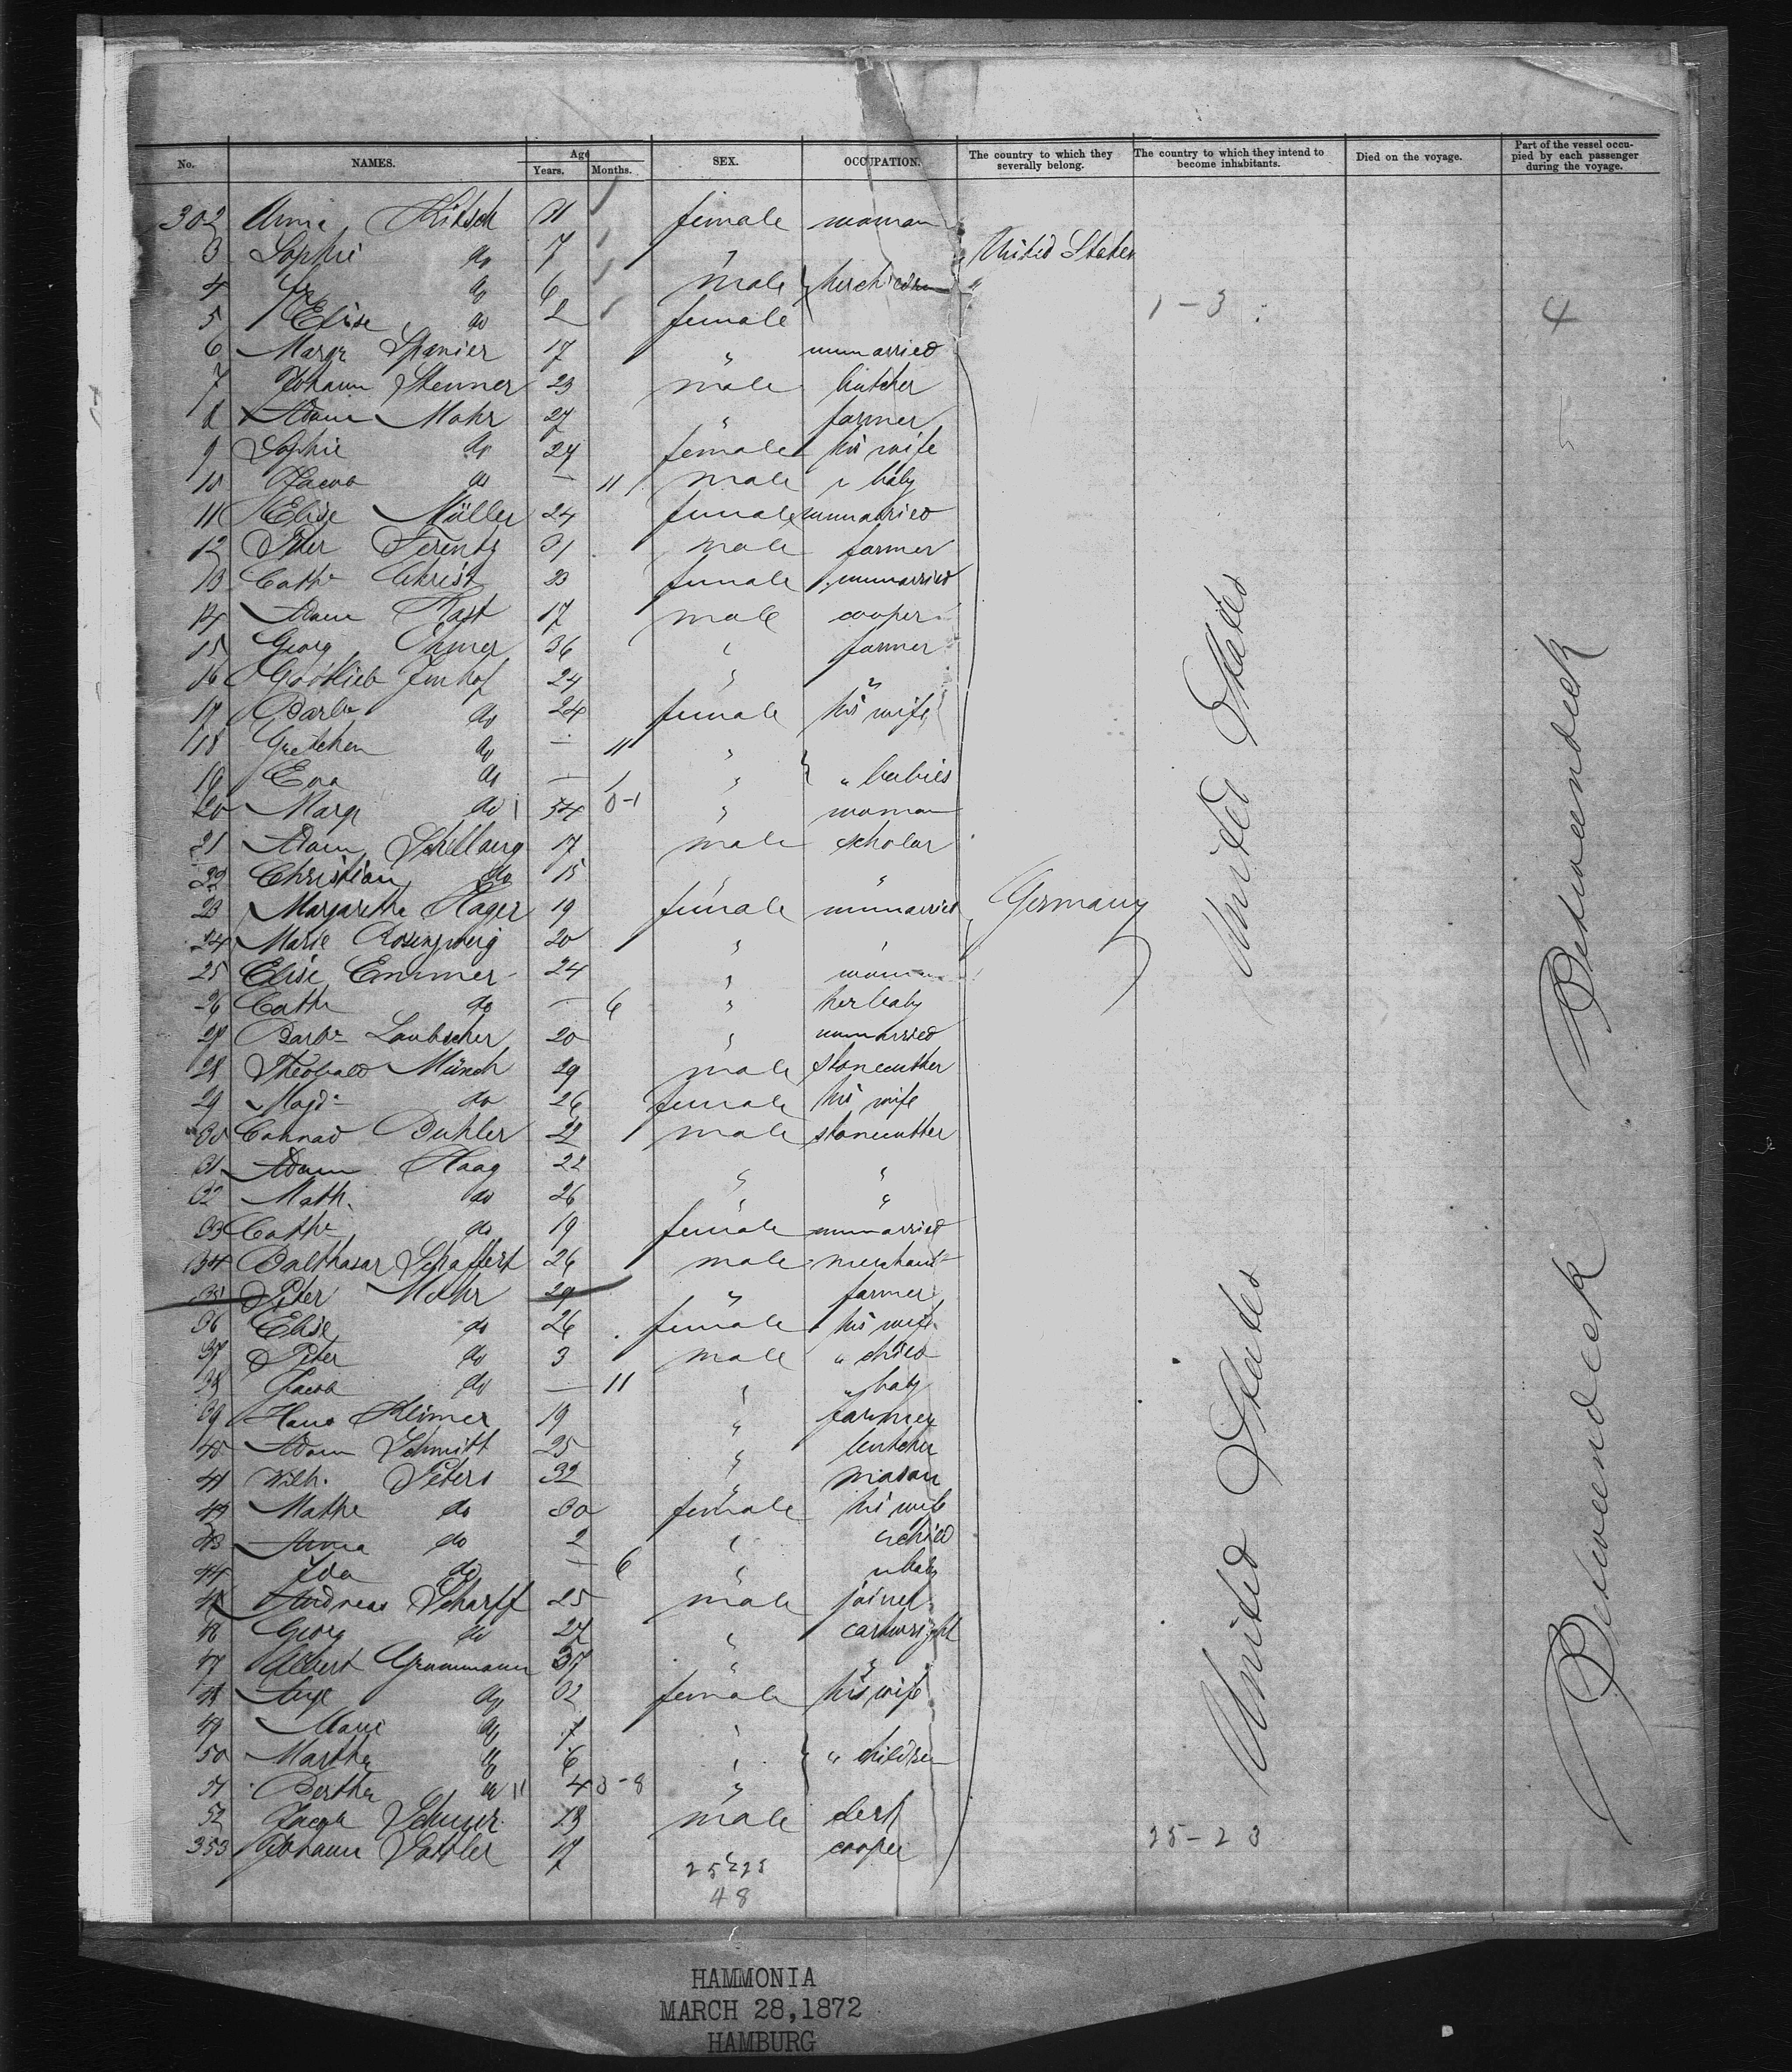 No. NAMES. Age Years. Months. SEX. OCCUPATION. The country to which they severally belong. The country to which they intend to become inhabitants. Died on the voyage. Part of the vessel occupied by each passenger during the voyage.
302 Anna Kitsch 31 female woman
3 Sophie do 7 " United States
4 do 6 male her children "
5 Elise do 2 female 1-3 4
6 Margr Spanier 17 " unmarried
7 Johann Stenner 23 male butcher
8 Adam Mohr 27 " farmer
9 Sophie do 24 female his wife
10 Jacob do — 11 male " baby
11 Elise Müller 24 female unmarried
12 Peter Ferentz 31 male farmer
13 Cathe Christ 23 female unmarried
14 Adam Rast 17 male cooper
15 Georg 36 " farmer
16 Gottlieb Imhof 24 " "
17 Barba do 24 female his wife
18 Gretchen do — 11 "
19 Eva do — 1 " " babies
20 Margr do 54 0-1 " woman
21 Adam Schllaug 17 male scholar
22 Christian do 15 " "
23 Margaretha Hager 19 female unmarried Germany
24 Marie Rosenzweig 20 " "
25 Elise Emmer 24 " woman
26 Cathe do — 6 " her baby
27 Barba Laubscher 20 " unmarried
28 Theobald Münch 29 male stonecutter
29 Magd do 26 female his wife
30 Conrad Buhler 22 male stonecutter
31 Adam Haag 22 " "
32 Math. do 26 "
33 Cathe do 19 female unmarried
34 Balthasar Schaffert 26 male merchant
35 Peter Mohr 29 " farmer
36 Elise do 26 female his wife
37 Peter do 3 male " child
38 Jacob do — 11 " " baby
39 Hans Kleimer 19 " farmer
40 Adam Schmitt 25 " butcher
41 Wilh. Peters 32 " mason
42 Mathe do 30 female his wife
43 Anna do 2 " " child
44 Ida do — 6 " " baby
45 Andreas Scharff 25 male joiner
46 Georg do 27 " cartwright
47 Albert Grummann 37 " "
48 do 32 female his wife
49 Marie do 7 "
50 Martha do 6 " " children
51 Bertha do 11 4 3-8 "
52 Jacob 18 male clerk
353 Johann Sattler 17 " cooper 25-23
25 23
48
United States
United States
Betweendeck
Betweendeck
HAMMONIA
MARCH 28,1872
HAMBURG